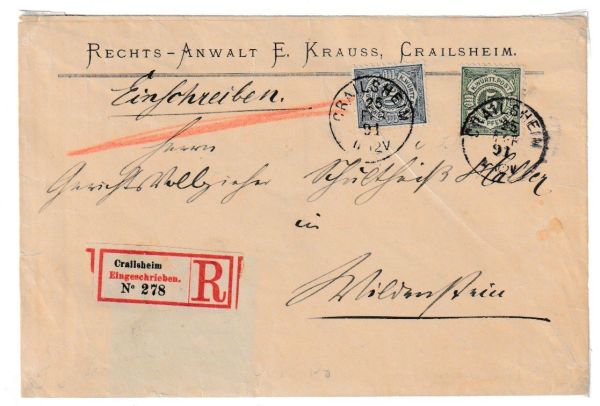 RECHTS-ANWALT E. KRAUSS, CRAILSHEIM.
Einschreiben.
K. WÜRTT. POST
CRAILSHEIM
25
91
CRAILSHEIM
25
91
Herrn
Gerichtsvollzieher Schultheiß Haller
in
Wildenstein
Crailsheim
Eingeschrieben.
No 278
R